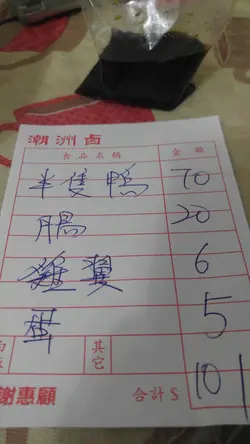 潮洲卤
食品名稱 金額
半隻鴨 70
腸 20
雞翼 6
蛋 5
其它
謝惠顧 合計$ 101